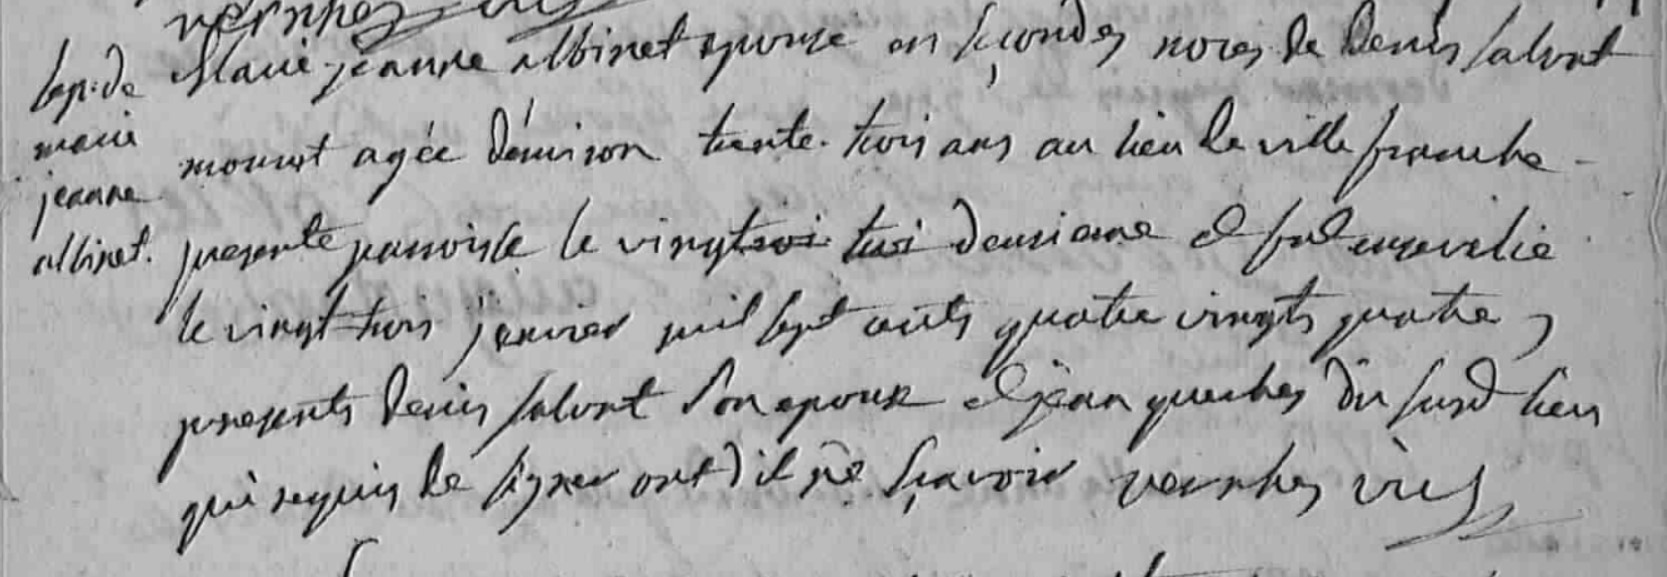 vernhes vic
sep. de
marie
jeanne
albinet.
Marie jeanne albinet epouse en secondes noces de Denis salvat
mourut agée d'environ trente-trois ans au lieu de ville franche -
presente parroisse le vingt deusieme et fut ensevelie
le vingt-trois janvier mil sept cents quatre vingts quatre,
presents Denis salvat son epoux et jean du susd lieu
qui requis de signer ont dit ne sçavoir vernhes vic